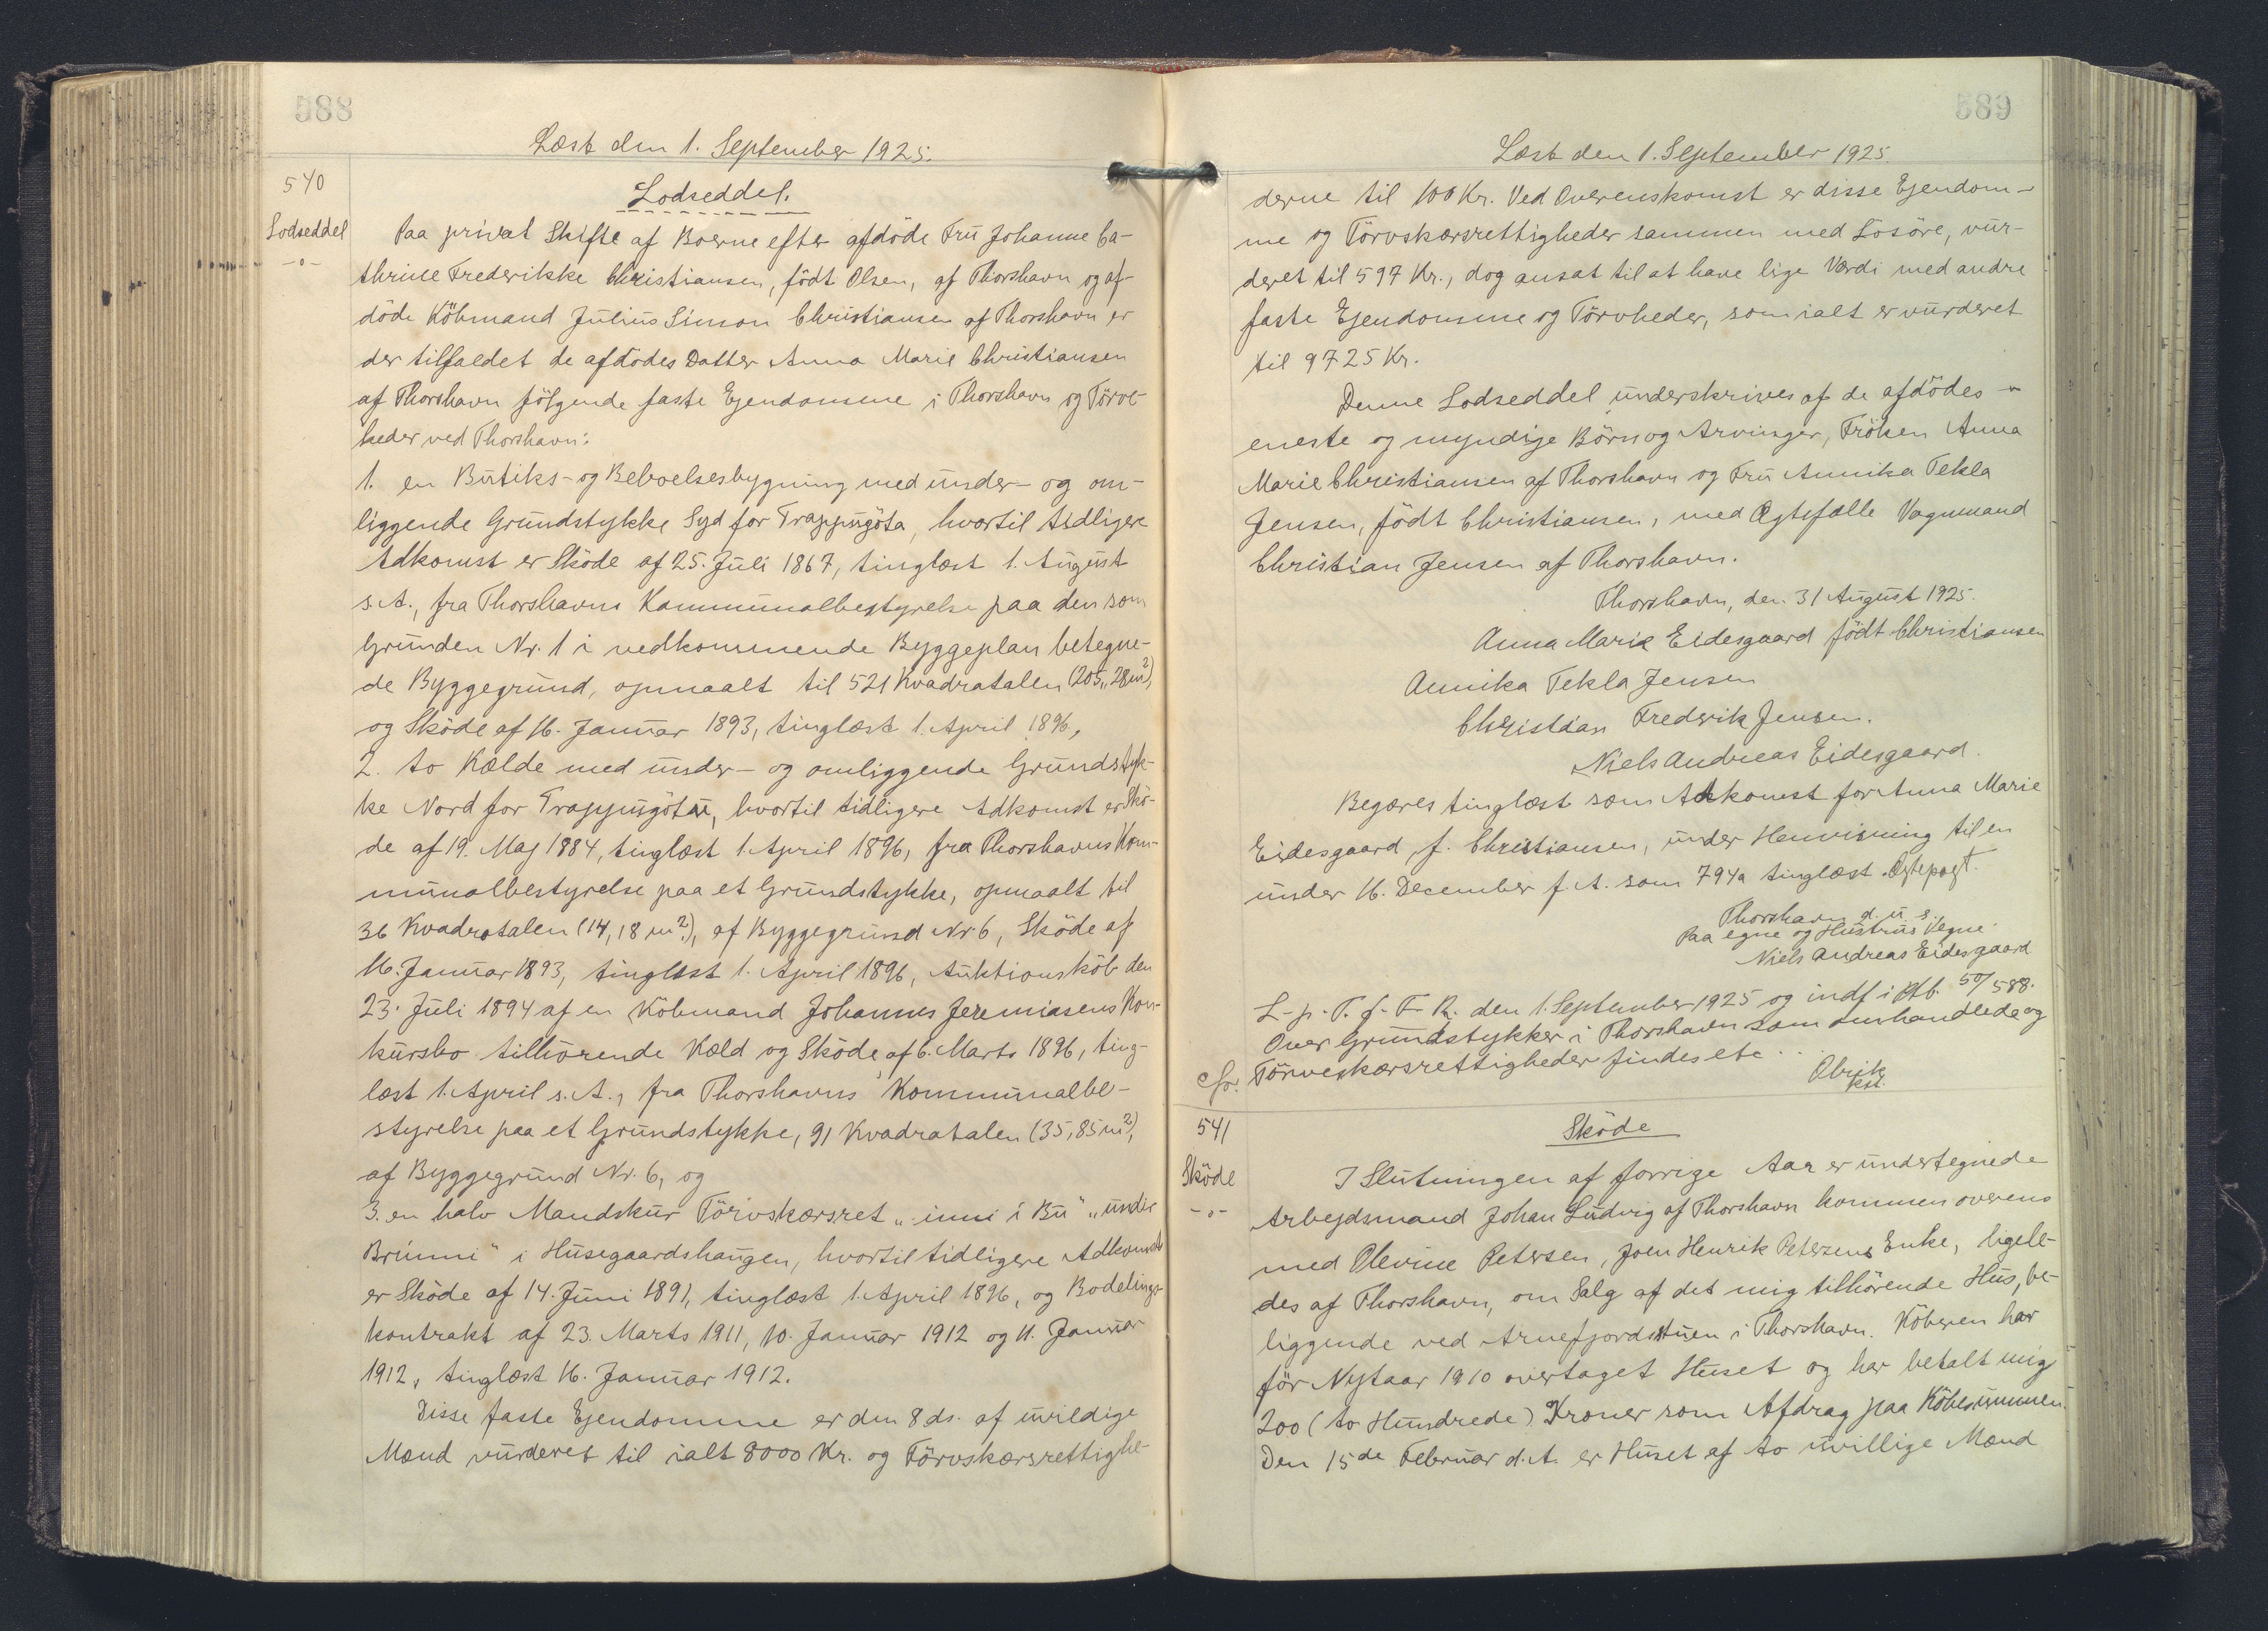 588
Læst den 1. September 1925.
540
Lodseddel.
Lodseddel
-o-
Paa privat Skifte af Boerne efter afdöde Fru Johanne Ca-
thrine Frederikke Christiansen, född Olsen, af Thorshavn og af-
döde Köbmand Julius Simon Christiansen af Thorshavn er
der tilfaldet de afdödes Datter Anna Marie Christiansen
af Thorshavn fölgende faste Ejendomme i Thorshavn og Törve-
heder ved Thorshavn:
1. en Butiks- og Beboelsesbygning med under- og om-
liggende Grundstykke Syd for Trappugöta, hvortil tidligere
Adkomst er Sköde af 25. Juli 1867, tinglæst 1. August
s.A., fra Thorshavns Kommunalbestyrelse paa den som
Grunden Nr. 1 i vedkommende Byggeplan betegne-
de Byggegrund, opmaalt til 521 Kvadratalen (205,28 m²),
og Sköde af 16. Januar 1893, tinglæst 1. April 1896,
2. to Kælde med under- og omliggende Grundstyk-
ke Nord for Trappugötu, hvortil tidligere Adkomst er Skö-
de af 19. Maj 1884, tinglæst 1. April 1896, fra Thorshavns Kom-
munalbestyrelse paa et Grundstykke, opmaalt til
36 Kvadratalen (14,18 m²), af Byggegrund Nr. 6, Sköde af
16. Januar 1893, tinglæst 1. April 1896, Auktionsköb den
23. Juli 1894 af en Köbmand Johannes Jeremiasens Kon-
kursbo tilhörende Kæld og Sköde af 6. Marts 1896, ting-
læst 1. April s.A., fra Thorshavns Kommunalbe-
styrelse paa et Grundstykke, 91 Kvadratalen (35,85 m²),
af Byggegrund Nr. 6, og
3. en halv Mandskur Törvskærsret „inni i Bu" „undir
Brunni" i Husegaardshaugen, hvortil tidligere Adkomst
er Sköde af 14. Juni 1891, tinglæst 1. April 1896, og Bodelings-
kontrakt af 23. Marts 1911, 10. Januar 1912 og 11. Januar
1912, tinglæst 16. Januar 1912.
Disse faste Ejendomme er den 8 ds. af uvildige
Mænd vurderet til ialt 8000 Kr. og Törvskærsrettighe-
589
Læst den 1. September 1925
derne til 100 Kr. Ved Overenskomst er disse Ejendom-
me og Törvskærsrettigheder sammen med Lösöre, vur-
deret til 597 Kr., dog ansat til at have lige Værdi med andre
faste Ejendomme og Törvheder, som ialt er vurderet
til 9725 Kr.
Denne Lodseddel underskrives af de afdödes
eneste og myndige Börn og Arvinger, Fröken Anna
Marie Christiansen af Thorshavn og Fru Annika Tekla
Jensen, född Christiansen, med Ægtefælle Vognmand
Christian Jensen af Thorshavn.
Thorshavn, den 31 August 1925.
Anna Marie Eidesgaard född Christiansen
Annika Tekla Jensen
Christian Frederik Jensen.
Niels Andreas Eidesgaard.
Begæres tinglæst som Adkomst for Anna Marie
Eidesgaard, f. Christiansen, under Henvisning til en
under 16. December f.A. som 794a tinglæst Ægtepagt.
Thorshavn d. u. s.
Paa egne og Hustrus Vegne
Niels Andreas Eidesgaard
L. p. T. f. F. R. den 1. September 1925 og indf i Ptb. 50/588.
Over Grundstykker i Thorshavn som omhandlede og
Cfr. Törveskærsrettigheder findes etc..
Obrik
kst.
541
Sköde
Sköde
-o-
I Slutningen af forrige Aar er undertegnede
Arbejdsmand Johan Ludvig af Thorshavn kommen overens
med Olevine Petersen, Joen Henrik Petersens Enke, ligele-
des af Thorshavn, om Salg af det mig tilhörende Hus, be-
liggende ved Arnefjordstuen i Thorshavn. Köberen har
för Nytaar 1910 overtaget Huset og har betalt mig
200 (to Hundrede) Kroner som Afdrag paa Köbesummen.
Den 15de Februar d.A. er Huset af to uvillige Mænd